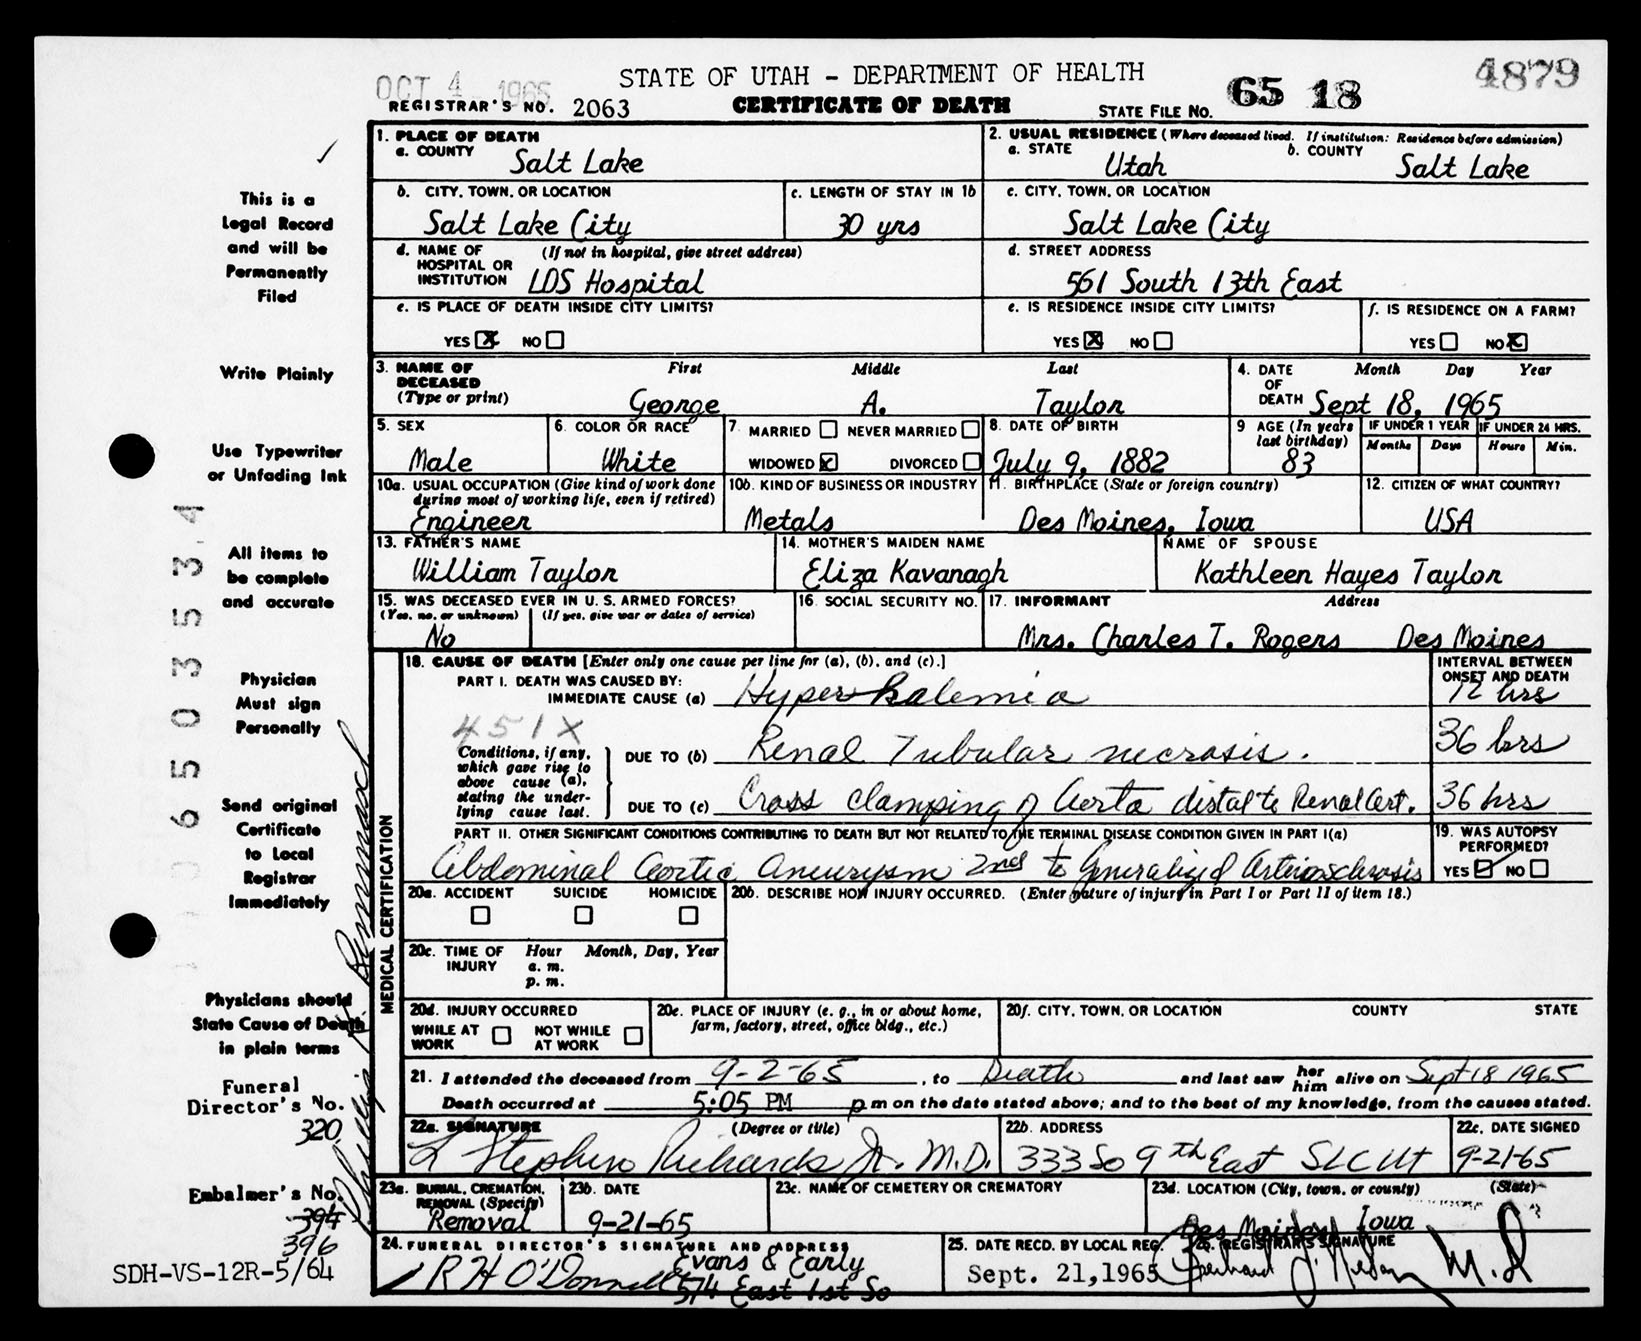 OCT 4 1965
STATE OF UTAH - DEPARTMENT OF HEALTH
4879
REGISTRAR'S NO. 2063
CERTIFICATE OF DEATH
STATE FILE NO. 65 18
1. PLACE OF DEATH
a. COUNTY Salt Lake
2. USUAL RESIDENCE (Where deceased lived. If institution: Residence before admission)
a. STATE Utah b. COUNTY Salt Lake
b. CITY, TOWN, OR LOCATION Salt Lake City
c. LENGTH OF STAY IN 1b 30 yrs
c. CITY, TOWN, OR LOCATION Salt Lake City
d. NAME OF HOSPITAL OR INSTITUTION (If not in hospital, give street address) LDS Hospital
d. STREET ADDRESS 561 South 13th East
e. IS PLACE OF DEATH INSIDE CITY LIMITS?
YES X NO
e. IS RESIDENCE INSIDE CITY LIMITS?
YES X NO
f. IS RESIDENCE ON A FARM?
YES NO X
3. NAME OF DECEASED (Type or print)
First Middle Last
George A. Taylor
4. DATE OF DEATH Month Day Year
Sept 18, 1965
5. SEX Male
6. COLOR OR RACE White
7. MARRIED NEVER MARRIED
WIDOWED X DIVORCED
8. DATE OF BIRTH July 9, 1882
9 AGE (In years last birthday) 83
IF UNDER 1 YEAR Months Days
IF UNDER 24 HRS. Hours Min.
10a. USUAL OCCUPATION (Give kind of work done during most of working life, even if retired)
Engineer
10b. KIND OF BUSINESS OR INDUSTRY
Metals
11. BIRTHPLACE (State or foreign country)
Des Moines, Iowa
12. CITIZEN OF WHAT COUNTRY?
USA
13. FATHER'S NAME
William Taylor
14. MOTHER'S MAIDEN NAME
Eliza Kavanagh
NAME OF SPOUSE
Kathleen Hayes Taylor
15. WAS DECEASED EVER IN U. S. ARMED FORCES?
(Yes, no, or unknown) (If yes, give war or dates of service)
No
16. SOCIAL SECURITY NO.
17. INFORMANT Address
Mrs. Charles T. Rogers Des Moines
MEDICAL CERTIFICATION
18. CAUSE OF DEATH [Enter only one cause per line for (a), (b), and (c).]
INTERVAL BETWEEN ONSET AND DEATH
PART I. DEATH WAS CAUSED BY:
IMMEDIATE CAUSE (a) Hyperkalemia 12 hrs
451X
Conditions, if any, which gave rise to above cause (a), stating the underlying cause last.
DUE TO (b) Renal Tubular necrosis. 36 hrs
DUE TO (c) Cross clamping of Aorta distal to Renal Art. 36 hrs
PART II. OTHER SIGNIFICANT CONDITIONS CONTRIBUTING TO DEATH BUT NOT RELATED TO THE TERMINAL DISEASE CONDITION GIVEN IN PART I(a)
Abdominal Aortic Aneurysm 2nd to Generalized Arteriosclerosis
19. WAS AUTOPSY PERFORMED?
YES ✓ NO
20a. ACCIDENT SUICIDE HOMICIDE
20b. DESCRIBE HOW INJURY OCCURRED. (Enter nature of injury in Part I or Part II of item 18.)
20c. TIME OF INJURY Hour Month, Day, Year
a. m.
p. m.
20d. INJURY OCCURRED
WHILE AT WORK NOT WHILE AT WORK
20e. PLACE OF INJURY (e. g., in or about home, farm, factory, street, office bldg., etc.)
20f. CITY, TOWN, OR LOCATION COUNTY STATE
21. I attended the deceased from 9-2-65, to Death and last saw her him alive on Sept 18 1965
Death occurred at 5:05 PM p m on the date stated above; and to the best of my knowledge, from the causes stated.
22a. SIGNATURE (Degree or title)
L Stephen Richards Jr. M.D.
22b. ADDRESS
333 So 9th East SLC Ut
22c. DATE SIGNED
9-21-65
23a. BURIAL, CREMATION, REMOVAL (Specify)
Removal
23b. DATE
9-21-65
23c. NAME OF CEMETERY OR CREMATORY
23d. LOCATION (City, town, or county) (State)
Des Moines, Iowa
24. FUNERAL DIRECTOR'S SIGNATURE AND ADDRESS
R H O'Donnell Evans & Early
574 East 1st So
25. DATE RECD. BY LOCAL REG.
Sept. 21, 1965
26. REGISTRAR'S SIGNATURE
M.D
This is a
Legal Record
and will be
Permanently
Filed
Write Plainly
Use Typewriter
or Unfading Ink
All items to
be complete
and accurate
Physician
Must sign
Personally
Send original
Certificate
to Local
Registrar
Immediately
Physicians should
State Cause of Death
in plain terms
Funeral
Director's No.
320
Embalmer's No.
394
396
SDH-VS-12R-5/64